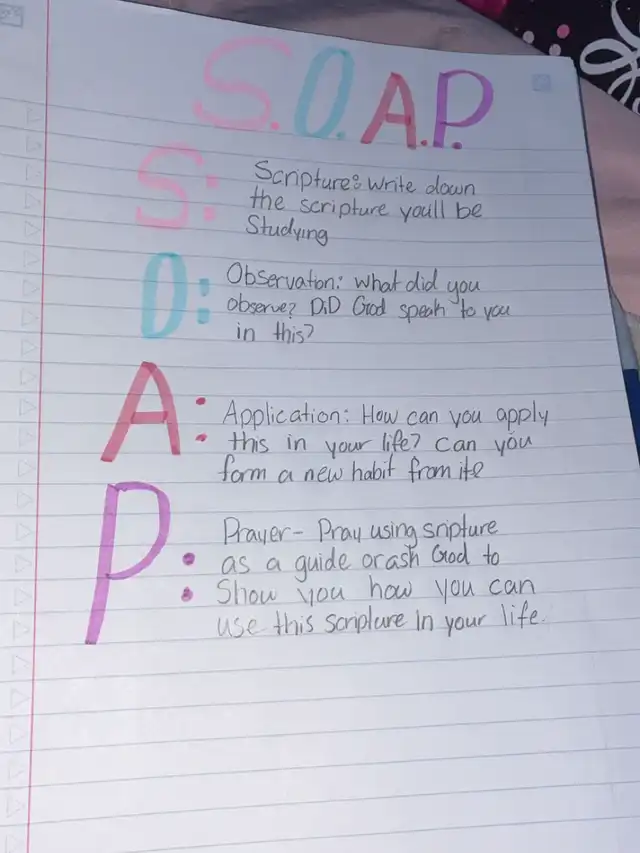 S.O.A.P.
S: Scripture: Write down
the scripture youll be
Studying
O: Observation: What did you
observe? DiD God speak to you
in this?
A: Application: How can you apply
this in your life? Can you
form a new habit from ite
P: Prayer- Pray using sripture
as a guide or ash God to
Show you how you can
use this scripture in your life.